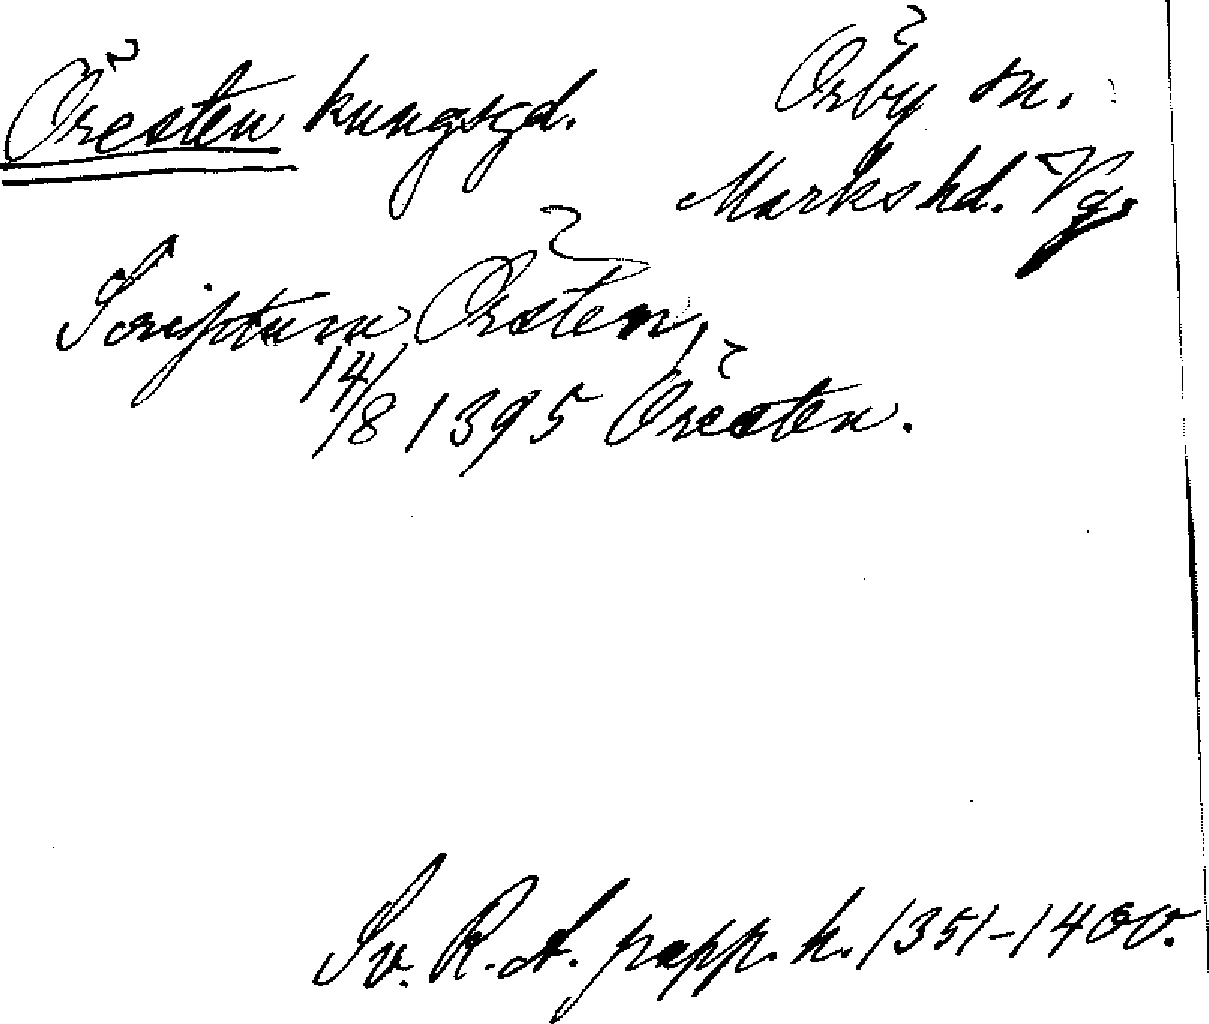 Öresten kungsgd. Örby sn.
Marks hd. Vg.
Scriptum Örsten,
14/8 1395 Öresten.
Sv. R. A. papp. h. 1351-1400.